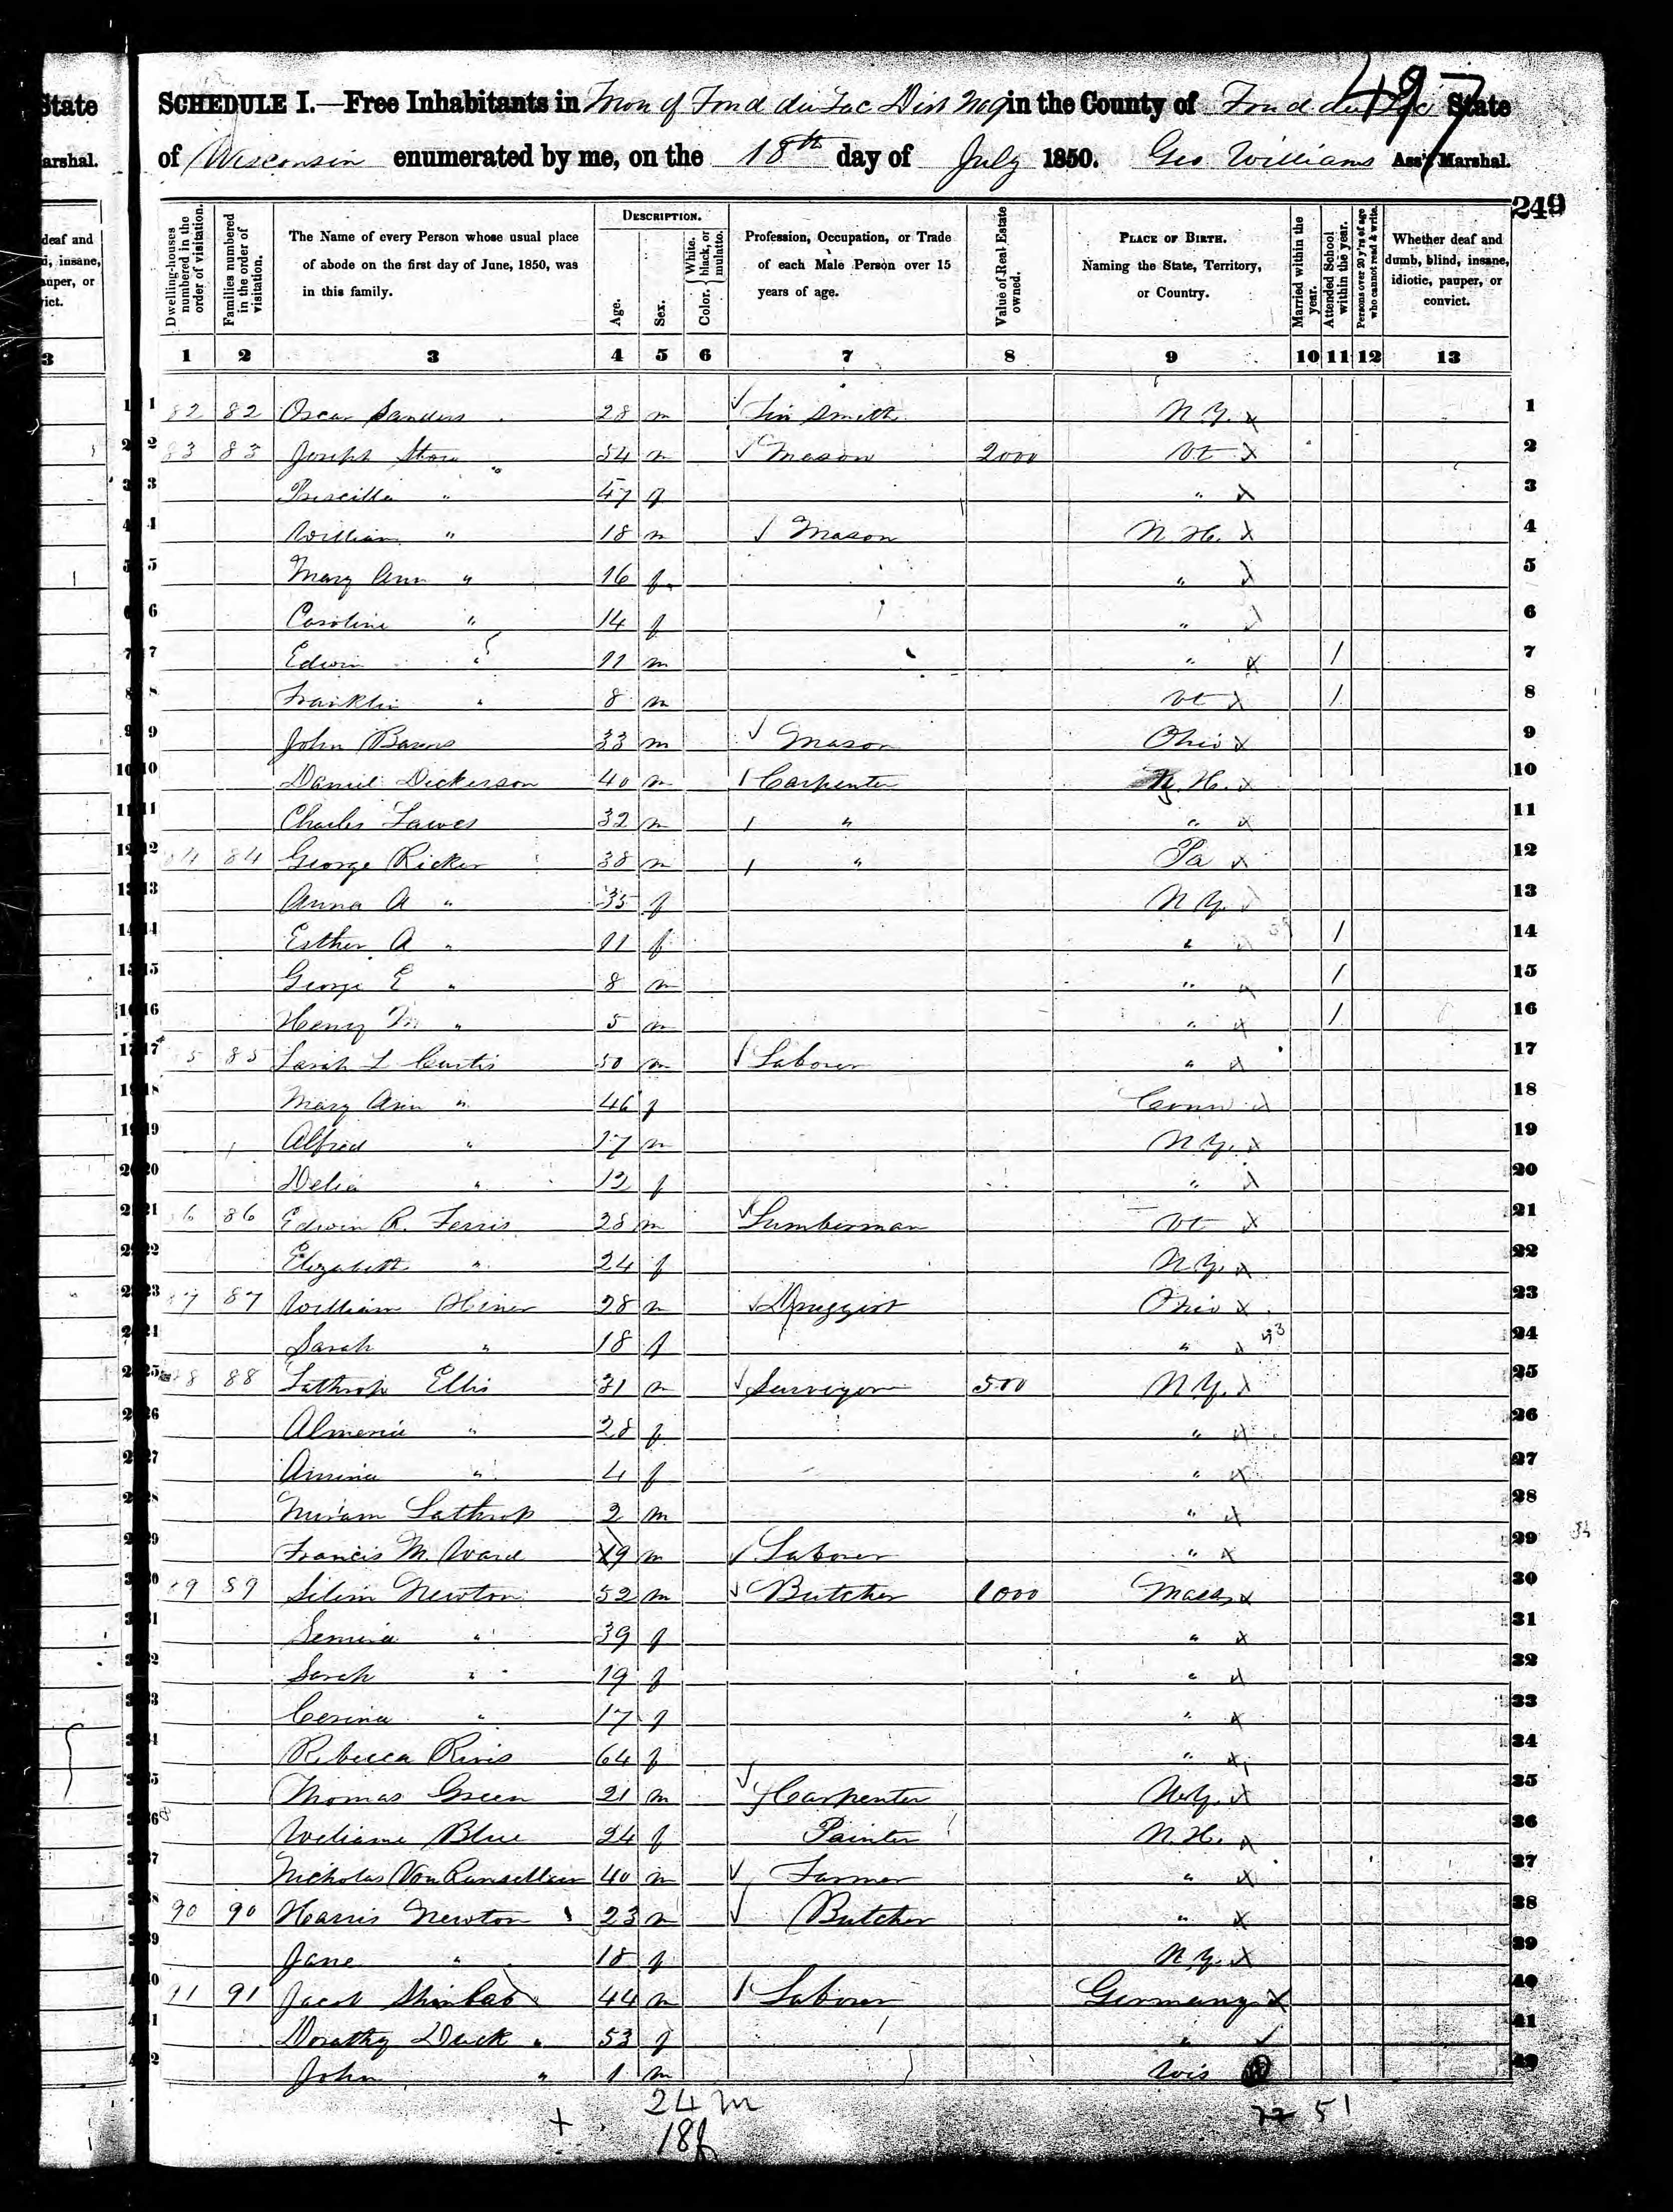 State
arshal.
deaf and
d, insane,
auper, or
vict.
3
497
SCHEDULE I.—Free Inhabitants in Town of Fond du Lac Dist No 9 in the County of Fond du Lac State
of Wisconsin enumerated by me, on the 18th day of July 1850. Geo Williams Ass't Marshal.
249
Dwelling-houses numbered in the order of visitation.
Families numbered in the order of visitation.
The Name of every Person whose usual place of abode on the first day of June, 1850, was in this family.
DESCRIPTION.
Age.
Sex.
Color. { White, black, or mulatto.
Profession, Occupation, or Trade of each Male Person over 15 years of age.
Value of Real Estate owned.
PLACE OF BIRTH. Naming the State, Territory, or Country.
Married within the year.
Attended School within the year.
Persons over 20 y'rs of age who cannot read & write.
Whether deaf and dumb, blind, insane, idiotic, pauper, or convict.
1 2 3 4 5 6 7 8 9 10 11 12 13
1 82 82 Oscar Sanders 28 m Tin Smith N.Y. 1
2 83 83 Joseph 54 m Mason 2000 Vt 2
3 Priscilla " 47 f " 3
4 William " 18 m Mason N.H. 4
5 Mary Ann " 16 f " 5
6 Caroline " 14 f " 6
7 Edwin " 11 m " 1 7
8 Franklin " 8 m Vt 1 8
9 John Barns 33 m Mason Ohio 9
10 Daniel Dickerson 40 m Carpenter N.H. 10
11 Charles Lawes 32 m " " 11
12 84 84 George Ricker 38 m " Pa 12
13 Anna A " 35 f N.Y. 13
14 Esther A " 11 f " 1 14
15 George E " 8 m " 1 15
16 Henry M " 5 m " 1 16
17 85 85 L Curtis 50 m Laborer " 17
18 Mary Ann " 46 f Conn 18
19 Alfred " 17 m N.Y. 19
20 Delia " 12 f " 20
21 86 86 Edwin R. Ferris 28 m Lumberman Vt 21
22 Elizabeth " 24 f N.Y. 22
23 87 87 William Hiner 28 m Druggist Ohio 23
24 Sarah " 18 f " 24
25 88 88 Lathrop Ellis 31 m Surveyor 500 N.Y. 25
26 Almeria " 28 f " 26
27 " 4 f " 27
28 Lathrop 2 m " 28
29 Francis M. Ward 19 m Laborer " 29
30 89 89 Newton 52 m Butcher 1000 Mass 30
31 " 39 f " 31
32 Sarah " 19 f " 32
33 " 17 f " 33
34 Rebecca 64 f " 34
35 Thomas Green 21 m Carpenter N.Y. 35
36 Blue 24 f Painter N.H. 36
37 Nicholas Van Ransellaer 40 m Farmer " 37
38 90 90 Harris Newton 23 m Butcher " 38
39 Jane " 18 f N.Y. 39
40 91 91 Jacob 44 m Laborer Germany 40
41 Dorathy Duck " 53 f " 41
42 John " 1 m Wis 42
24 m
18 f
51